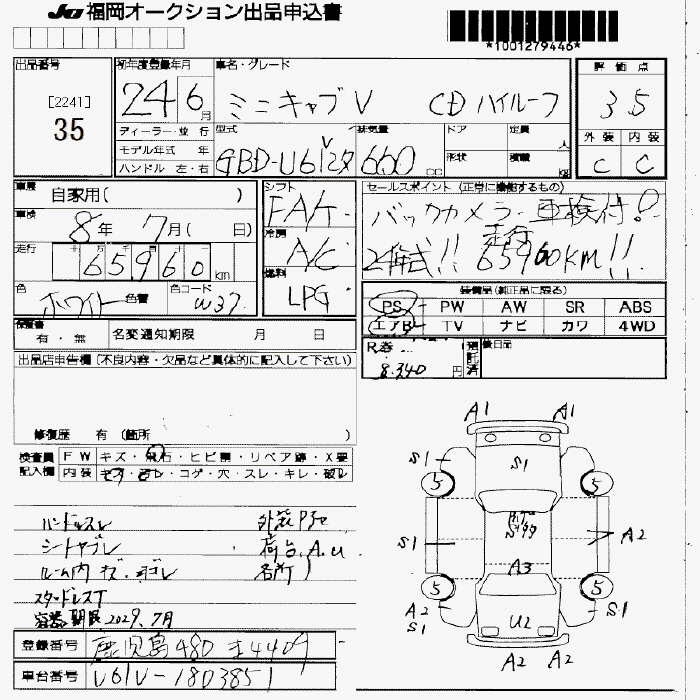 JU 福岡オークション出品申込書
*1001279446*
出品番号 初年度登録年月 車名・グレード 評価点
[2241]
35
24 6月 ミニキャブV CD ハイルーフ 3.5
ディーラー・並行 型式 排気量 ドア 定員 人 外装 内装
モデル年式 年 GBD-U61V 660 cc 形状 積載 kg C C
ハンドル 左・右
車歴 自家用( ) シフト FA/t セールスポイント(正常に機能するもの)
車検 8年 7月( 日) 冷房 A/C バックカメラ 車検付!
走行 65960km 燃料 LPG 走行65960km!!
色 ホワイト 色替 色コード W37
装備品(純正品に限る)
PS PW AW SR ABS
エアB TV ナビ カワ 4WD
保証書 有・無 名変通知期限 月 日
R券 8,340円 預託済 後日品
出品店申告欄(不良内容・欠品など具体的に記入して下さい)
修復歴 有(箇所 )
検査員記入欄 FW キズ・飛石・ヒビ割・リペア跡・X要
内装 キズ・コゲ・穴・スレ・キレ・破レ
ハンドルスレ
シートヤブレ 荷台、A.U
ルーム内 キズ・ヨゴレ 各所
スタッドレスT
容器期限 2029.7月
登録番号 鹿児島480
車台番号 U61V-1803851
A1 A1
S1 S1
5 5
S1 A2
A3
5 5
A2 S1 S1
U2
A2 A2